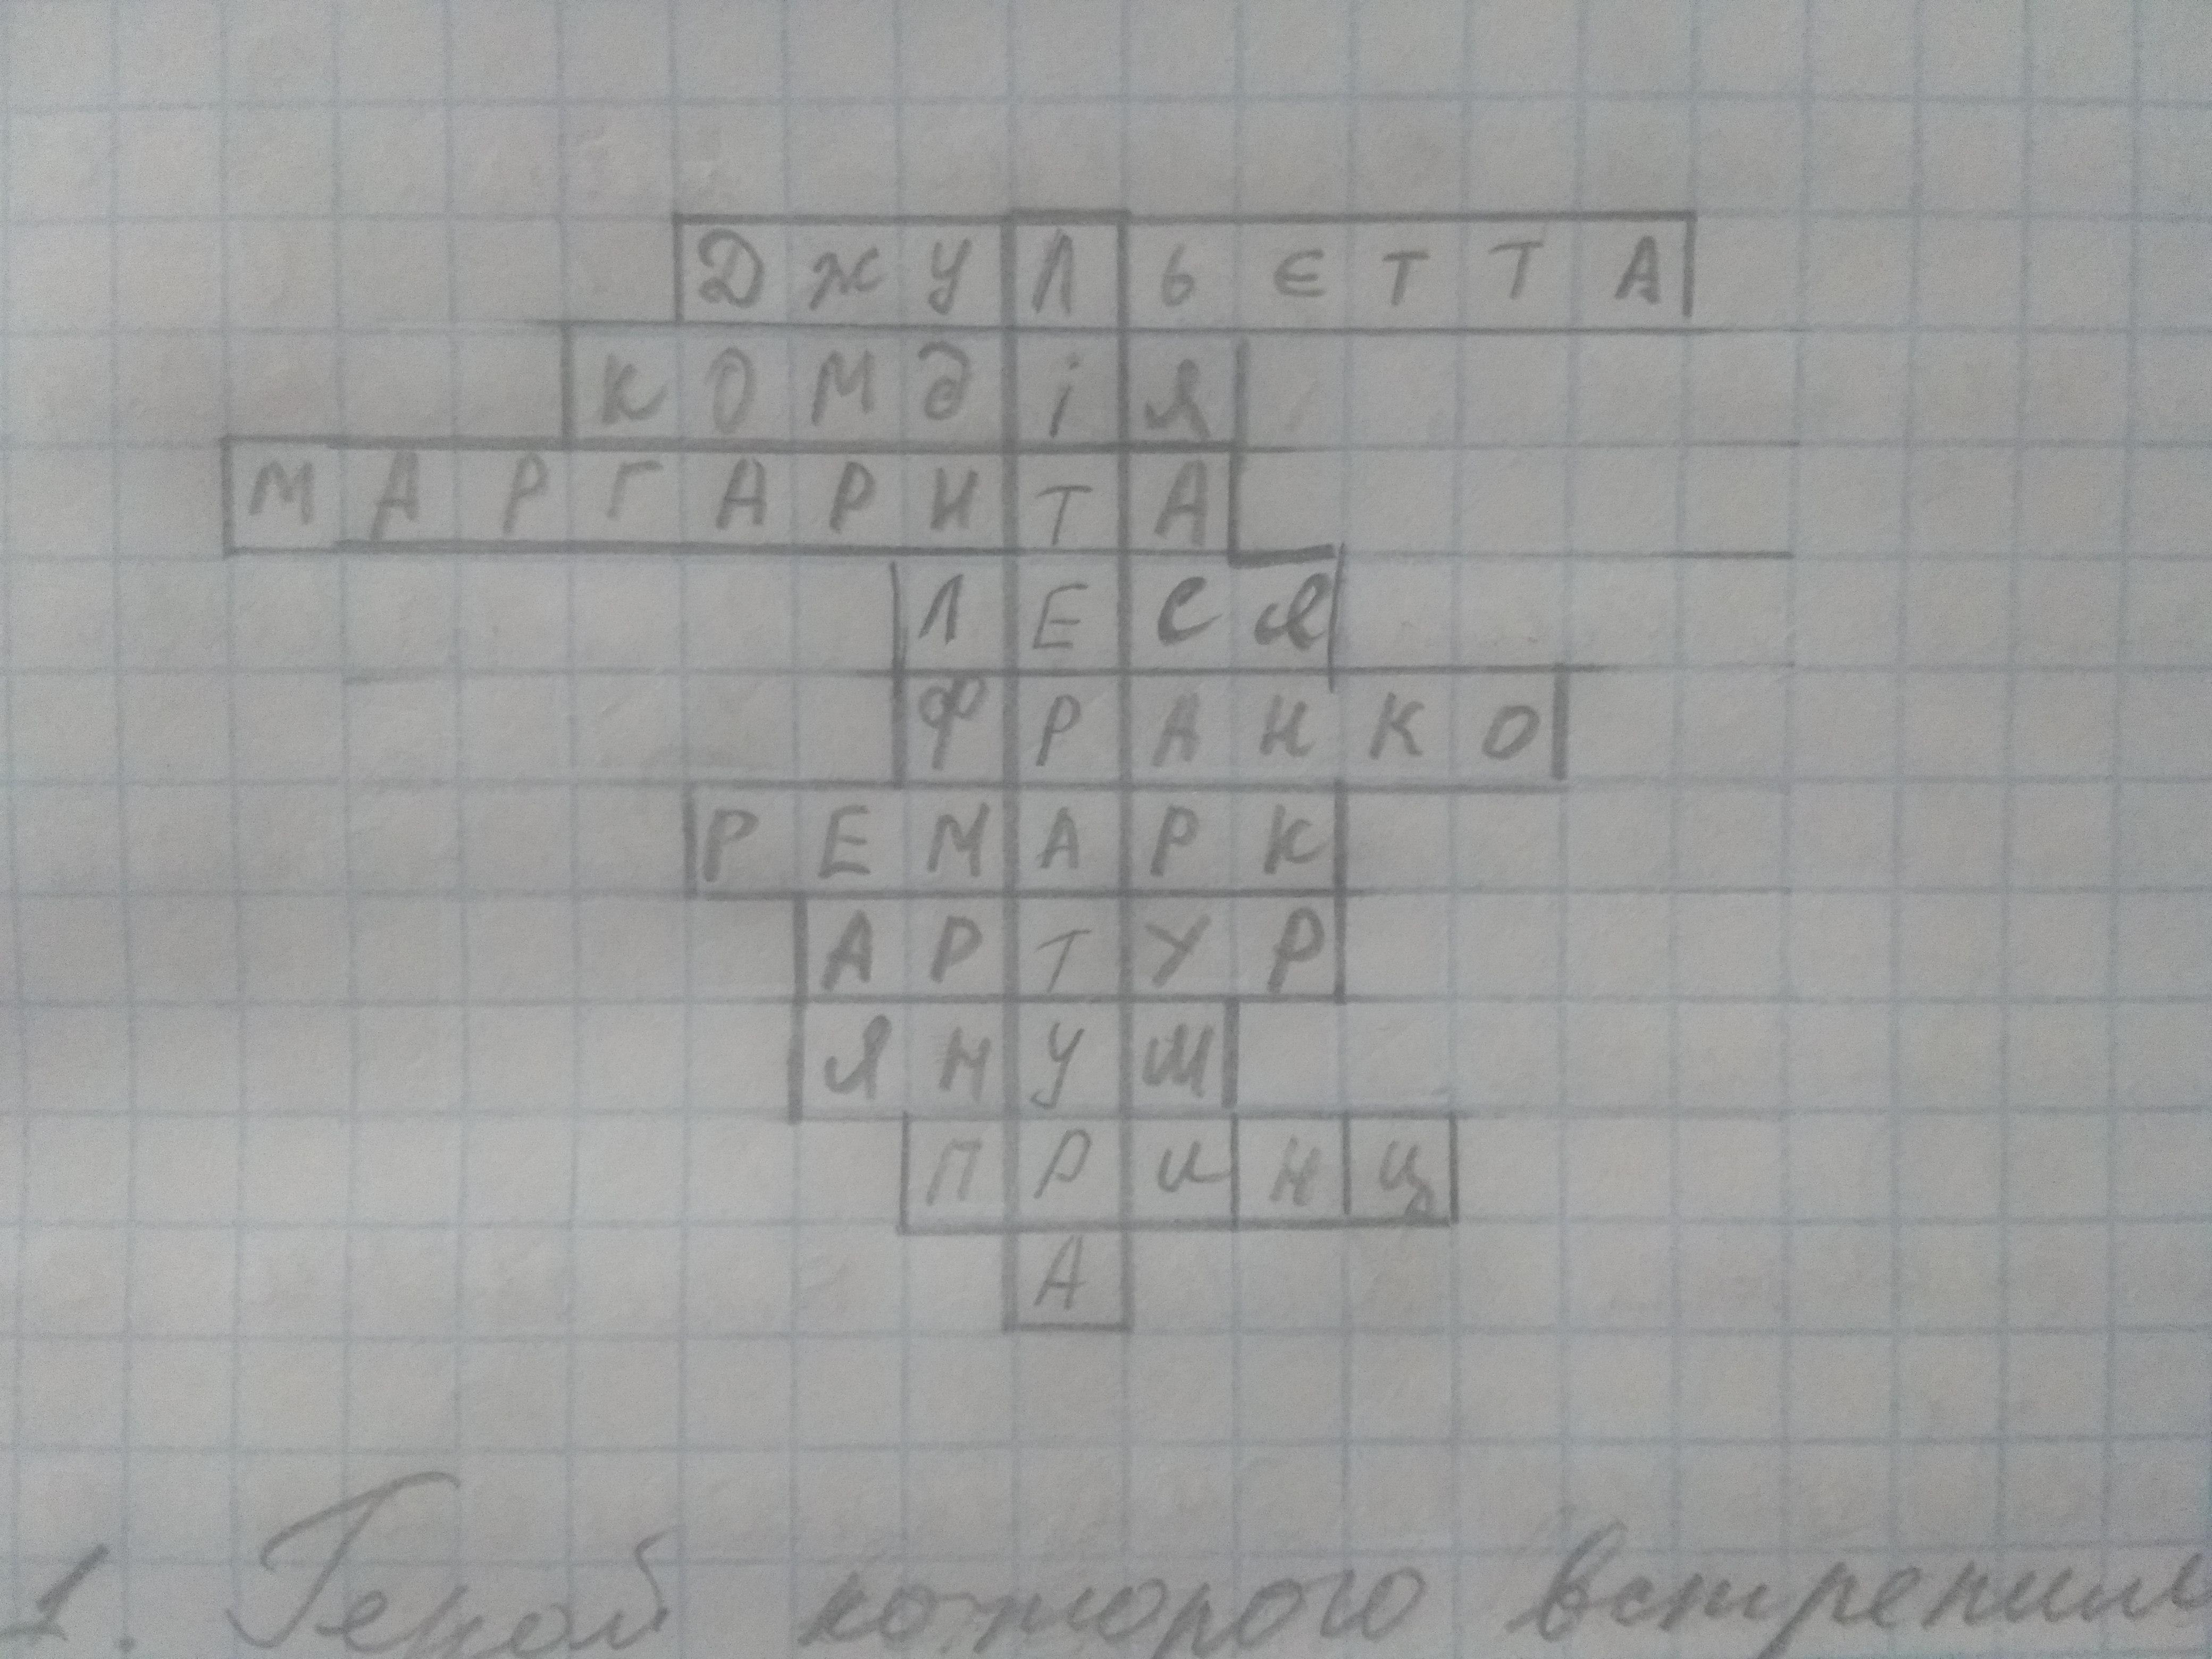 ДЖУЛЬЄТТА
КОМДІЯ
МАРГАРИТА
ЛЕСЯ
ФРАНКО
РЕМАРК
АРТУР
ЯНУШ
ПРИНЦ
А
1. Герой которого встретил